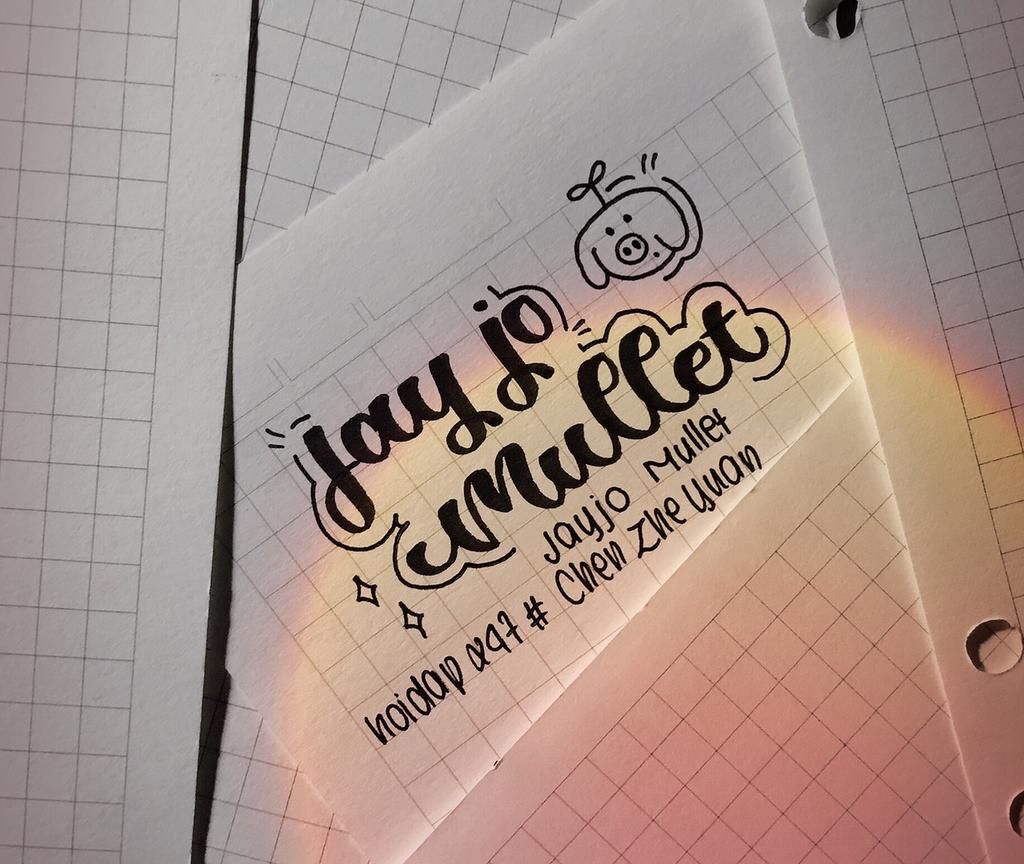 jay jo
Mullet
Jayjo Mullet
hoidap 247 # Chen Zhe Yuan